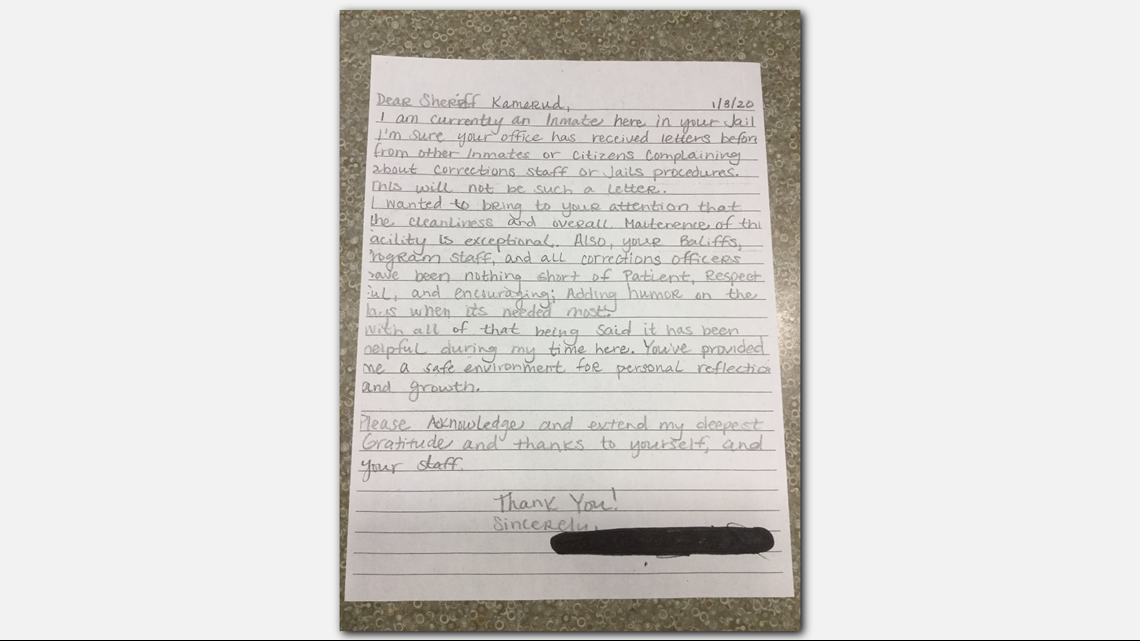 Dear Sheriff Kamerud,
1/8/20
I am currently an Inmate here in your Jail
I'm sure your office has received letters before
from other Inmates or Citizens Complaining
about corrections staff or Jails procedures.
This will not be such a letter.
I wanted to bring to your attention that
the cleanliness and overall Maitenence of thi
acility is exceptional. Also, your Baliffs,
rogram staff, and all corrections officers
have been nothing short of Patient, Respect
ful, and encouraging; Adding humor on the
days when its needed most.
With all of that being said it has been
helpful during my time here. You've provided
me a safe environment for personal reflectio
and growth.
Please Acknowledge and extend my deepest
Gratitude and thanks to yourself, and
your staff.
Thank You!
Sincerely,